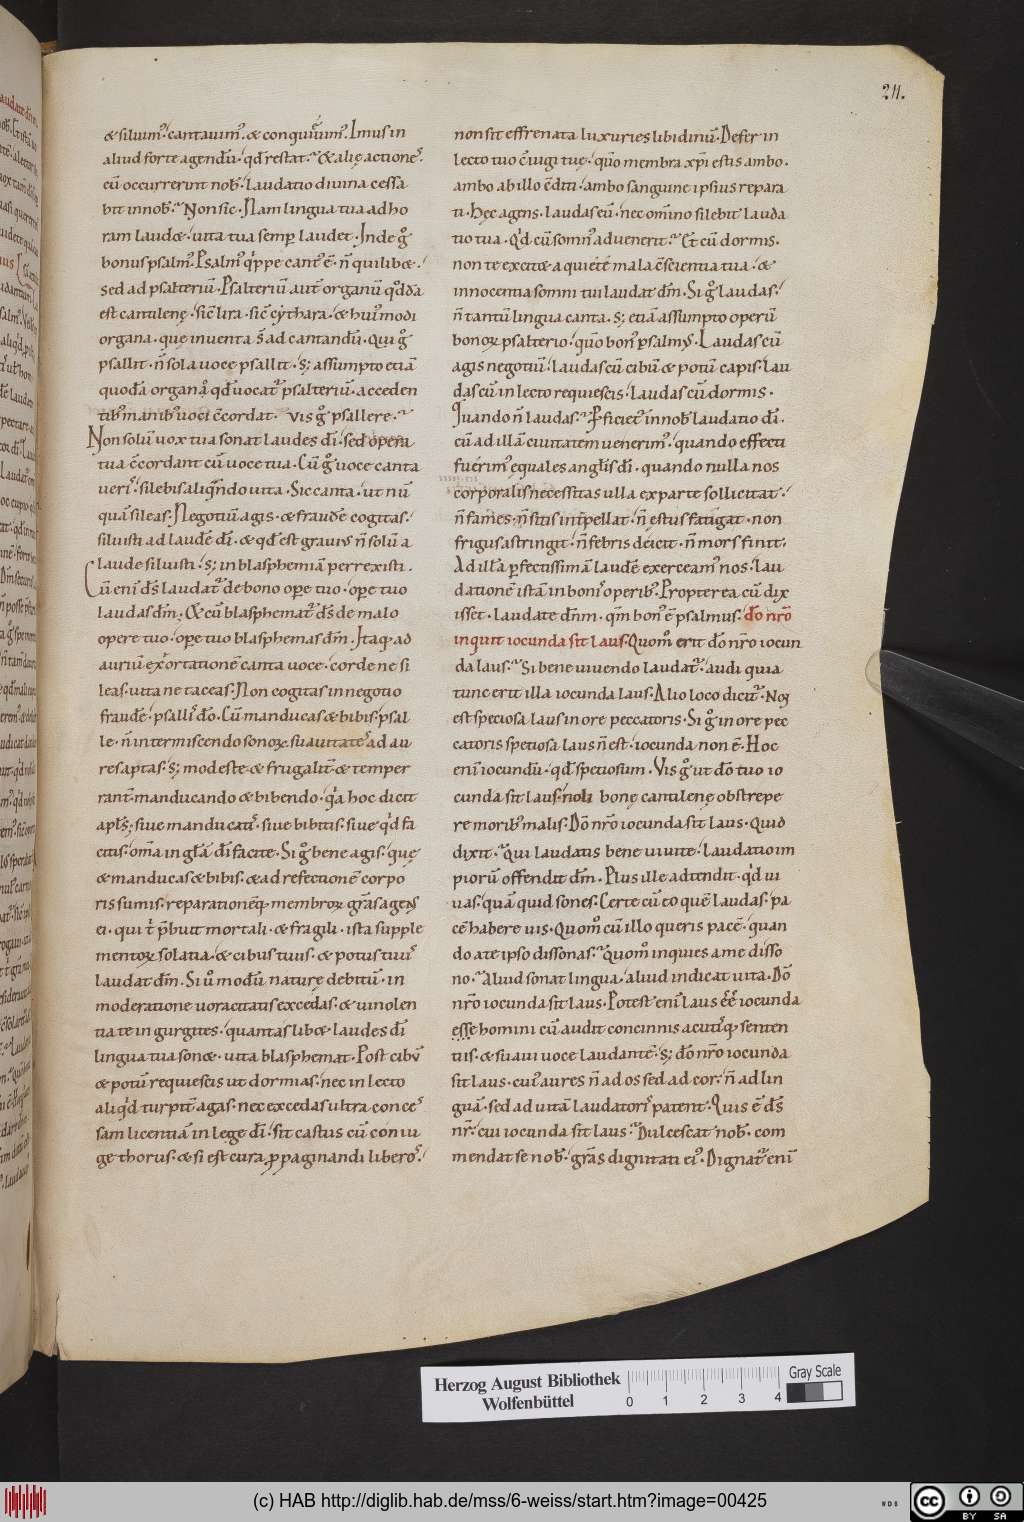 211.
& siluim᷒. cantauim᷒. & conquieuim᷒. Imus in
aliud forte agendū. qđ restat. & aliȩ actiones.
cū occurrerint nob̄. laudatio diuina cessa
bit in nob̄. Non sic. Nam lingua tua ad ho
ram laud&. uita tua semp laudet. Inde g̊
bonus psalm᷒. Psalm᷒ qippe cant᷒ ē. n̄ quilib&.
sed ad psalteriū. Psalteriū aut̄ organū qđda
est cantilenȩ. sic̄ lira. sic̄ cythara. & hui᷒modi
organa. quȩ inuenta s̄ ad cantandū. Qui g̊
psallit. n̄ sola uoce psallit. s; assumpto etiā
quodā organo. qđ uocat᷑ psalteriū. acceden
tib᷒ manib᷒ uoci c̄cordat. Vis g̊ psallere.
Non solū uox tua sonat laudes dī. sed opera
tua c̄cordant cū uoce tua. Cū g̊ uoce canta
ueris. silebis aliqn̄do uita. Sic canta. ut nū
quā sileas. Negotiū agis. & fraudē cogitas.
siluisti ad laudē dī. & qđ est grauius n̄ solū a
laude siluisti. s; in blasphemiā perrexisti.
Cū enī ds̄ laudat᷑ de bono ope tuo. ope tuo
laudas dm̄. & cū blasphemat᷑ ds̄ de malo
opere tuo. ope tuo blasphemas dm̄. Itaq ad
auriū exortationē canta uoce. corde ne si
leas. uita ne taceas. Non cogitas in negotio
fraudē. psallis dō. Cū manducas & bibis. psal
le. n̄ intermiscendo sonorꝝ suauitates ad au
res aptas. s; modeste & frugalit̄ & temper
rant̄ manducando & bibendo. qa hoc dicit
apl̄s; siue manducatis. siue bibitis. siue qd fa
citis. om̄a in gl̄a dī facite. Si g̊ bene agis. quȩ
& manducas & bibis. & ad refectionē corpo
ris sumis. reparationēq membrorꝝ gr̄as agens
ei. qui t̄ p̄buit mortali. & fragili. ista supple
mentorꝝ solatia. & cibus tuus. & potus tuus
laudat dm̄. Si ů modū naturȩ debitū. in
moderatione uoracitatis excedas. & uinolen
tia te ingurgites. quantaslib& laudes dī
lingua tua son&. uita blasphemat. Post cibū
& potū requiescis ut dormias. nec in lecto
aliqd turpit̄ agas. nec excedas ultra conces
sam licentiā in lege dī. sit castus cū coniu
ge thorus. & si est cura ꝓpaginandi liberos.
non sit effrenata luxuries libidinū. Defer in
lecto tuo c̄iugi tuȩ. qūo membra xp̄i estis ambo.
ambo ab illo c̄diti. ambo sanguine ipsius repara
ti. Hȩc agens. laudas eū. nec om̄ino silebit lauda
tio tua. Qd cū somn᷒ aduenerit. Et cū dormis.
non te excit& a quietē mala c̄scientia tua. &
innocentia somni tui laudat dm̄. Si g̊ laudas.
n̄ tantū lingua canta. s; etiā assumpto operū
bonorꝝ psalterio. qūo bon᷒ psalmus. Laudas cū
agis negotiū. laudas cū cibū & potū capis. lau
das cū in lecto requiescis. laudas cū dormis.
Quando n̄ laudas. Pficiet᷑ in nob̄ laudatio dī.
cū ad illā ciuitatem uenerim᷒. quando effecti
fuerim᷒ equales anglis dī. quando nulla nos
corporalis necessitas ulla ex parte sollicitat.
n̄ fames. n̄ sitis int̄pellat. n̄ ȩstus fatigat. non
frigus astringit. n̄ febris deicit. n̄ mors finit.
Ad illā pfectissimā laudē exerceam᷒ nos. lau
dationē istā in bonis operib᷒. Propterea cū dix
isset. laudate dn̄m. qm̄ bon᷒ ē psalmus. dō nr̄o
inquit iocunda sit laus. Quom̊ erit dō nr̄o iocun
da laus. Si bene uiuendo laudat᷑. audi quia
tunc erit illa iocunda laus. Alio loco dicit᷑. Non
est speciosa laus in ore peccatoris. Si g̊ in ore pec
catoris spetiosa laus n̄ est. iocunda non ē. Hoc
enī iocundū. qđ spetiosum. Vis g̊ ut dō tuo io
cunda sit laus. noli bonȩ cantilenȩ obstrepe
re morib᷒ malis. Dō nr̄o iocunda sit laus. Quid
dixit. Qui laudatis bene uiuite. laudatio im
piorū offendit dm̄. Plus ille adtendit. qd ui
uas. quā quid sones. Certe cū eo quē laudas. pa
cē habere uis. Quom̊ cū illo queris pacē. quan
do a te ipso dissonas. Quom̊ inquies a me disso
no. Aliud sonat lingua. aliud indicat uita. Dō
nr̄o iocunda sit laus. Potest enī laus ē̄ē iocunda
esse homini cū audit concinnis acutisq senten
tiis. & suaui uoce laudantē. s; dō nr̄o iocunda
sit laus. cui᷒ aures n̄ ad os sed ad cor. n̄ ad lin
guā. sed ad uitā laudatoris patent. Quis ē ds̄
nr̄. cui iocunda sit laus. Dulcescat nob̄. com
mendat se nob̄. gr̄as dignitati ei᷒. Dignat᷑ enī
Herzog August Bibliothek
Wolfenbüttel
0 1 2 3 4
Gray Scale
(c) HAB http://diglib.hab.de/mss/6-weiss/start.htm?image=00425
WDB
cc BY SA